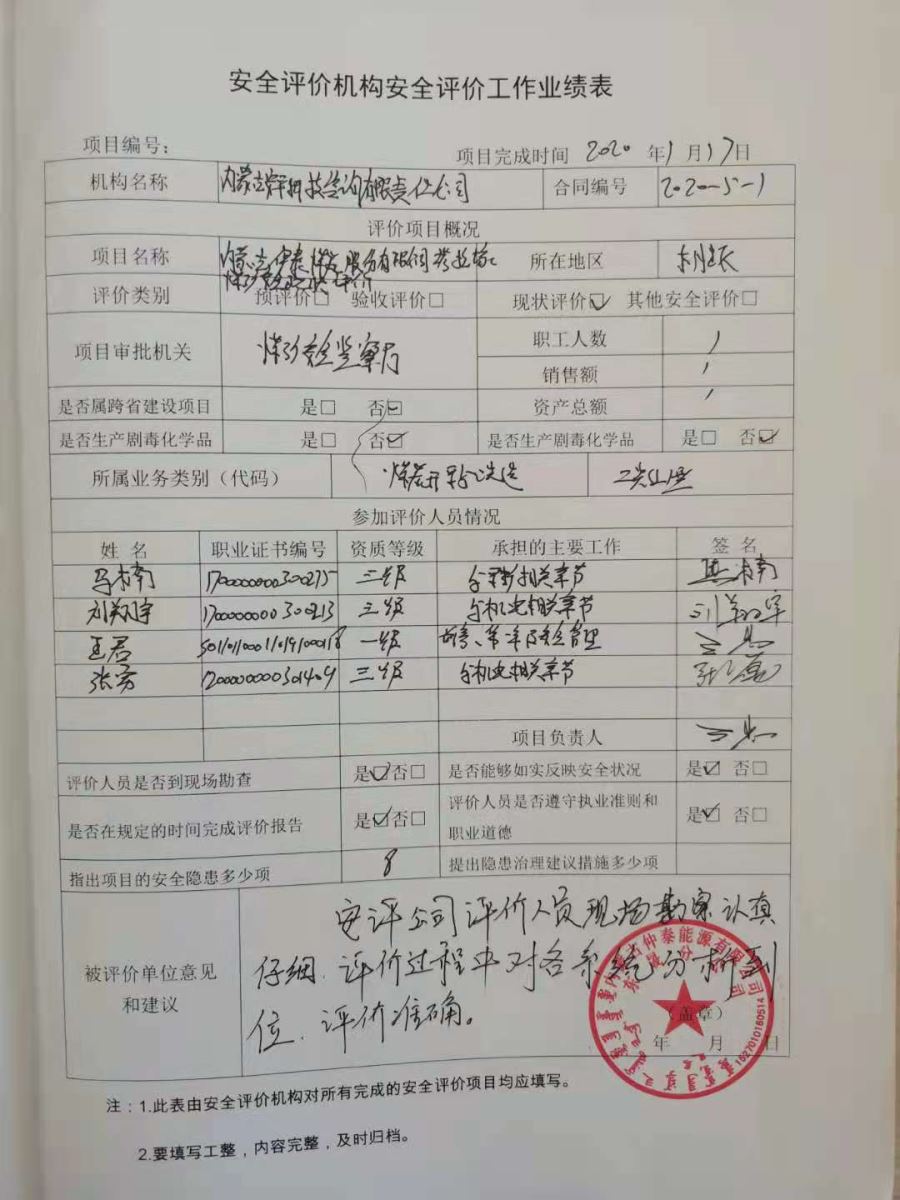 安全评价机构安全评价工作业绩表
项目编号：
项目完成时间 2020 年 1 月 17 日
机构名称 内蒙古 科技咨询有限责任公司 合同编号 2020-5-1
评价项目概况
项目名称 内蒙古伊泰煤炭股份有限公司 所在地区 东胜区
煤矿安全现状评价
评价类别 预评价□ 验收评价□ 现状评价☑ 其他安全评价□
项目审批机关 煤矿安全监察局 职工人数 /
销售额 /
是否属跨省建设项目 是□ 否☑ 资产总额 /
是否生产剧毒化学品 是□ 否☑ 是否生产剧毒化学品 是□ 否☑
所属业务类别（代码） 煤炭开采和洗选
参加评价人员情况
姓 名 职业证书编号 资质等级 承担的主要工作 签 名
1700000000300275 三级 相关章节
刘翔宇 1700000000300213 三级 与机电相关章节 刘翔宇
王君 一级
张 三级 与机电相关章节
项目负责人
评价人员是否到现场勘查 是☑否□ 是否能够如实反映安全状况 是☑ 否□
是否在规定的时间完成评价报告 是☑否□ 评价人员是否遵守执业准则和
职业道德 是☑ 否□
指出项目的安全隐患多少项 8 提出隐患治理建议措施多少项
被评价单位意见
和建议
安评公司评价人员现场勘察认真
仔细，评价过程中对各系统分析到
位，评价准确。
（盖章）
年 月 日
1527010160514
注：1.此表由安全评价机构对所有完成的安全评价项目均应填写。
2.要填写工整，内容完整，及时归档。